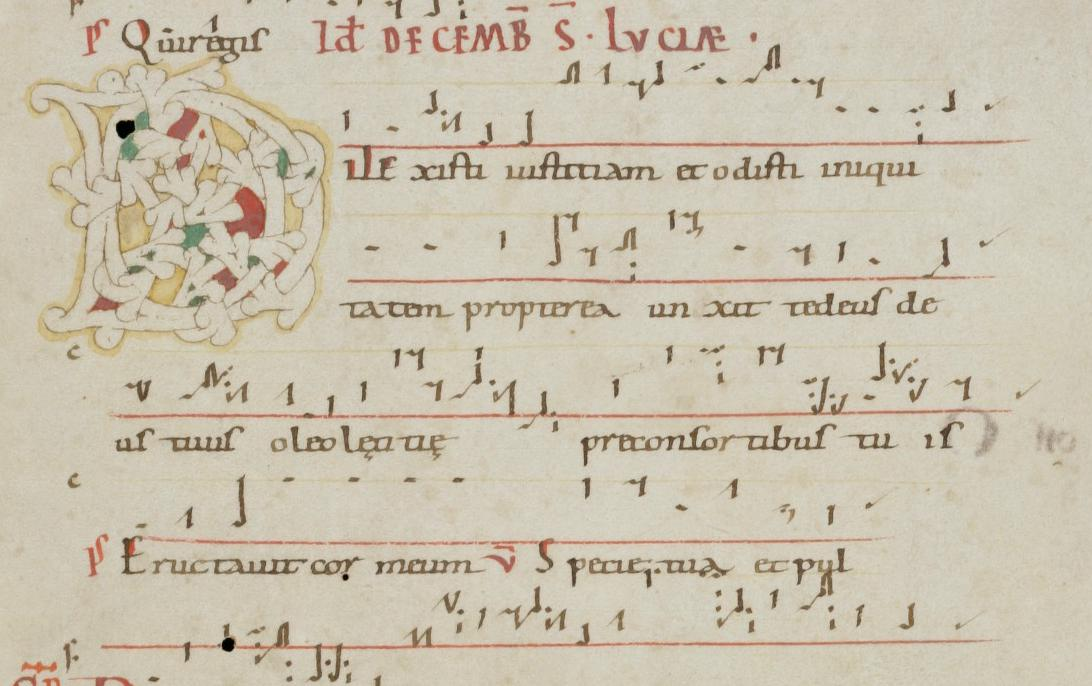 ps Qui regis Id DECEMB S · LVCIAE ·
DILExisti iustitiam et odisti iniqui
tatem propterea un xit te deus de
c
us tuus oleo lętitię pre consortibus tu is
c
ps Eructauit cor meum v Specie tua et pul
f